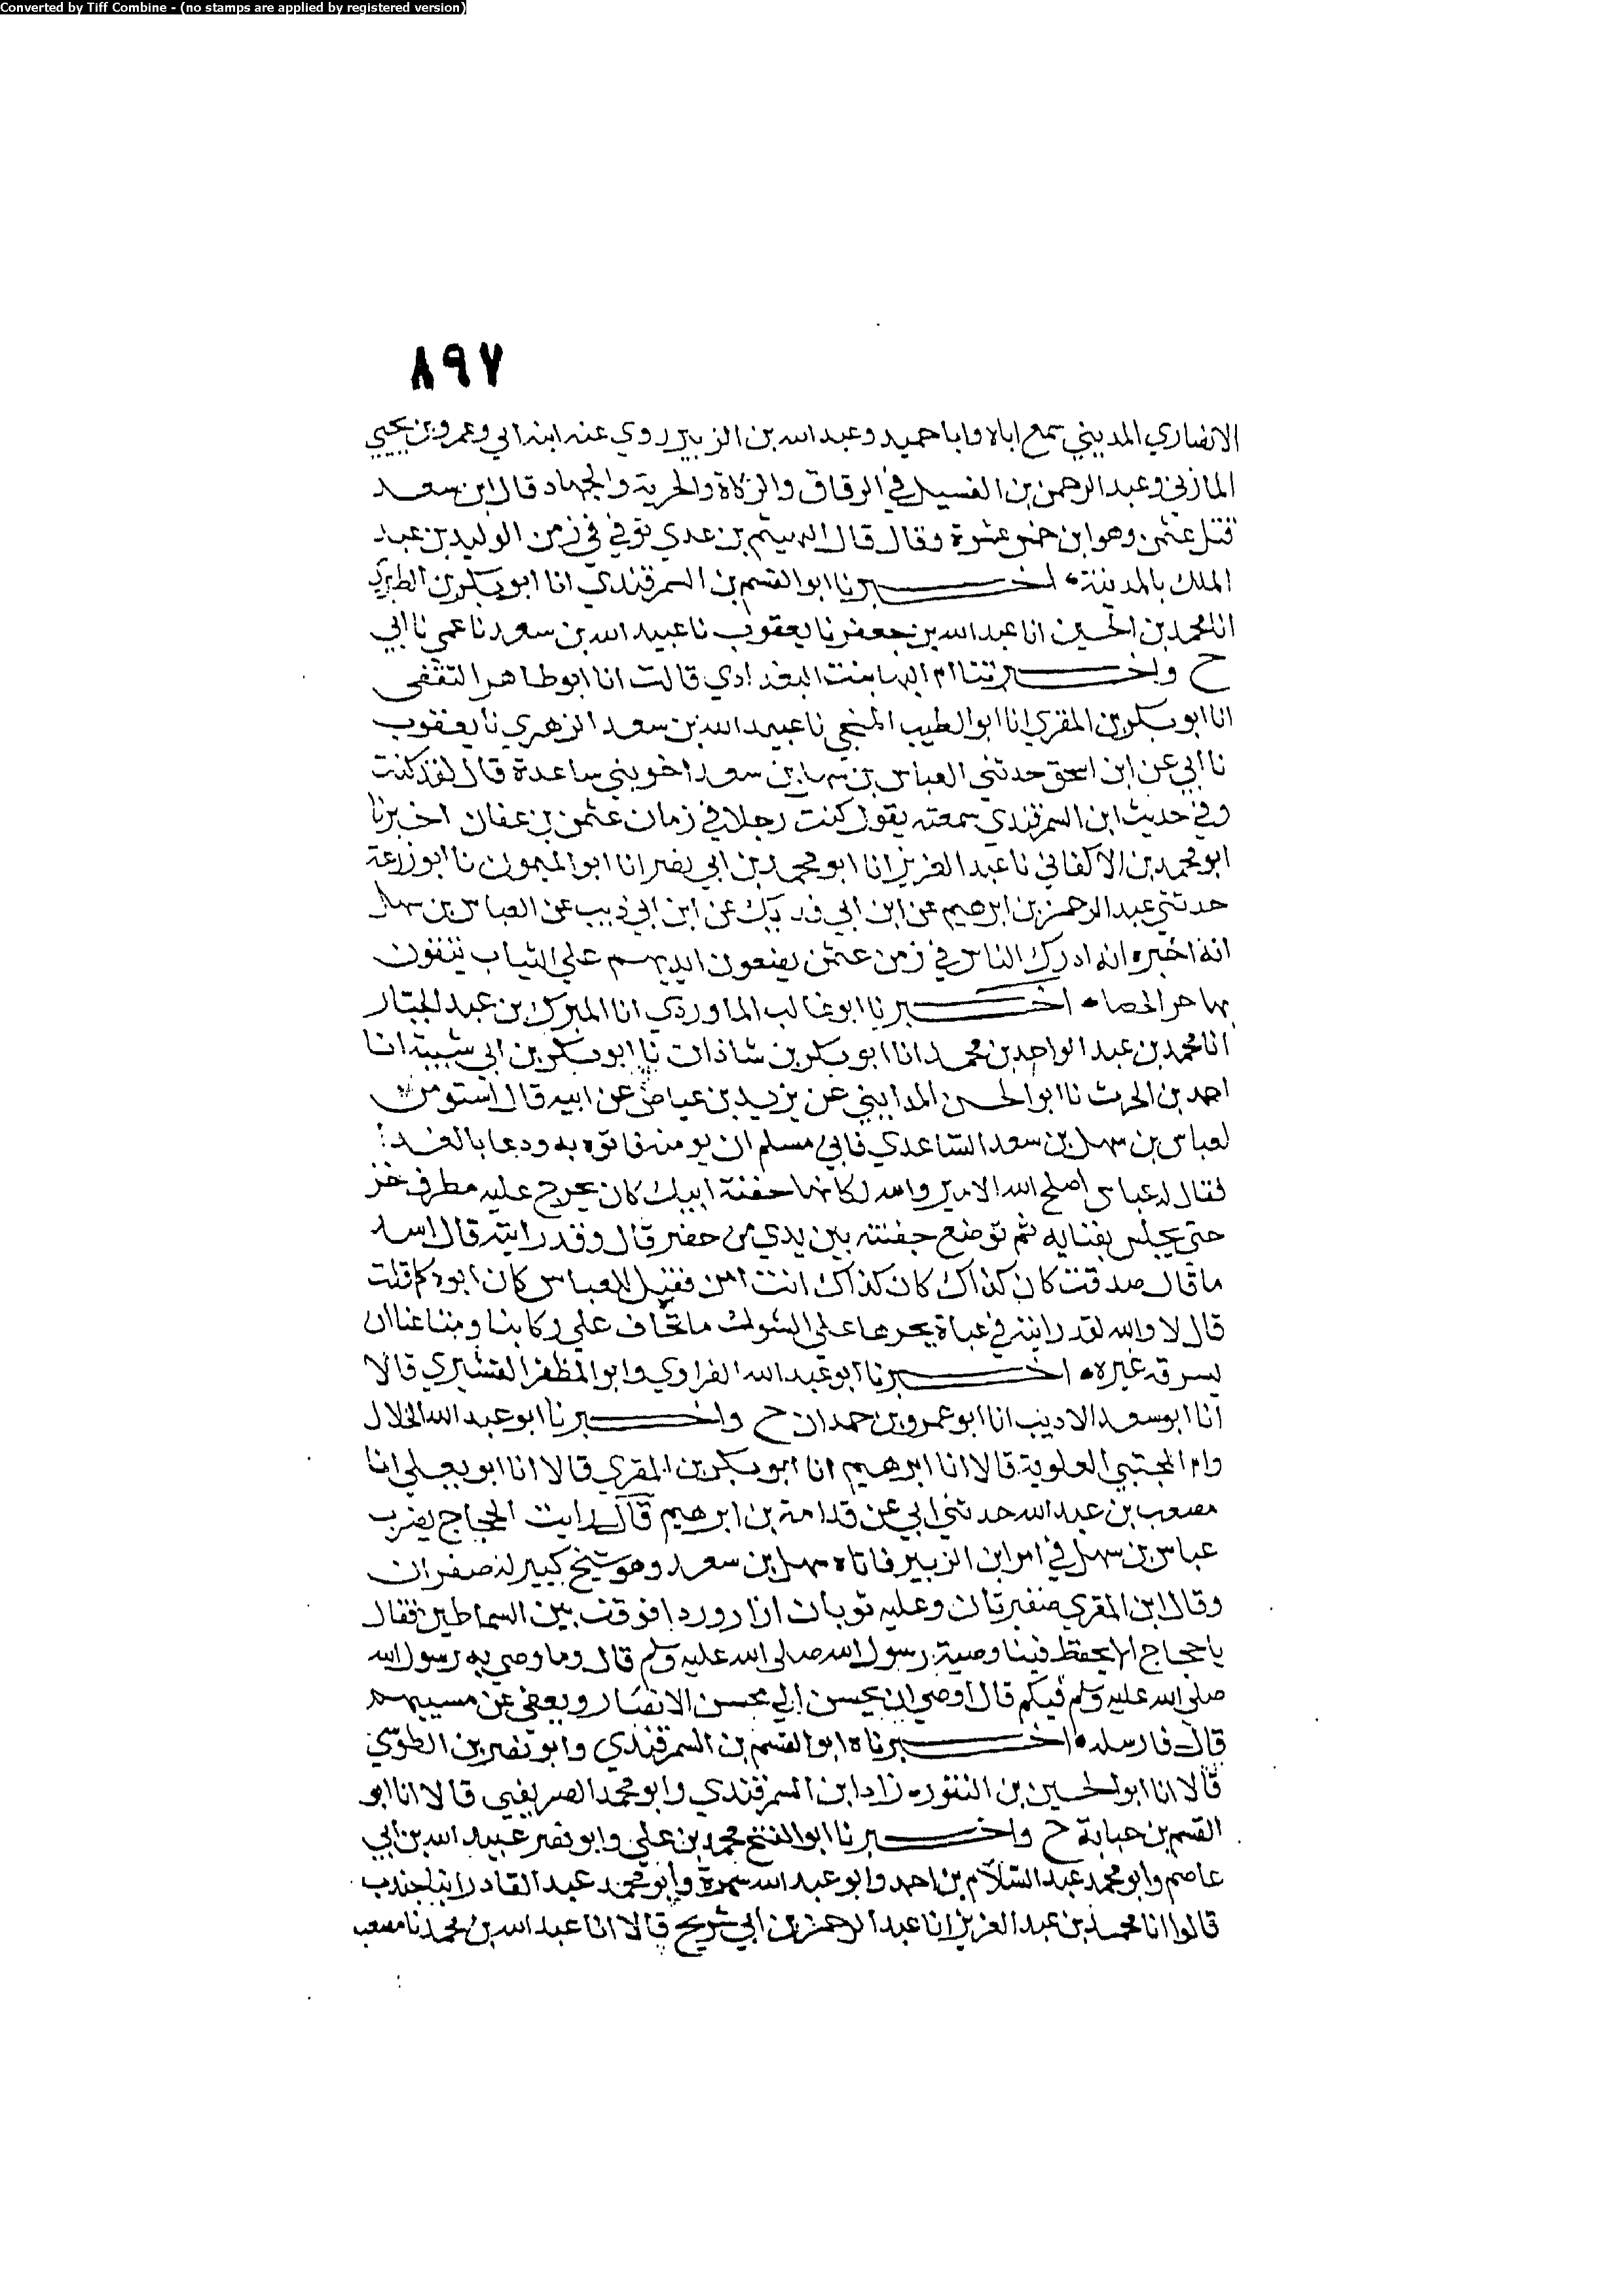 Converted by Tiff Combine - (no stamps are applied by registered version)
٨٩٧
الانصاري المديني سمع اباه وابا حميد وعبد الله بن الزبير روي عنه ابنه ابي وعمرو بن يحيي
المازني وعبد الرحمن بن الغسيل في الرقاق والزكاة والجزية والجهاد قال ابن سعد
قتل عثمن وهو ابن خمس عشرة وقال قال الهيثم بن عدي توفي في زمن الوليد بن عبد
الملك بالمدينة اخبرنا ابو القسم بن السمرقندي انا ابو بكر بن الطبري
انا محمد بن الحسين انا عبد الله بن جعفر نا يعقوب نا عبيد الله بن سعد نا عمي نا ابي
ح واخبرتنا ام البها بنت البغدادي قالت انا ابو طاهر الثقفي
انا ابو بكر بن المقري انا ابو الطيب المنبجي نا عبيد الله بن سعد الزهري نا يعقوب
نا ابي عن ابن اسحق حدثني العباس بن سهل بن سعد اخو بني ساعدة قال لقد كنت
وفي حديث ابن السمرقندي سمعته يقول كنت رجلا في زمان عثمن بن عفان اخبرنا
ابو محمد بن الاكفاني نا عبد العزيز انا ابو محمد بن ابي نصر انا ابو الميمون نا ابو زرعة
حدثني عبد الرحمن بن ابرهيم عن ابن ابي فديك عن ابن ابي ذيب عن العباس بن سهل
انه اخبره انه ادرك الناس في زمن عثمن يضعون ايديهم علي الثياب يتقون
بها حر الحصا اخبرنا ابو غالب الماوردي انا المبرك بن عبد الجبار
انا محمد بن عبد الواحد بن محمد انا ابو بكر بن شاذان نا ابو بكر بن ابي شيبة انا
احمد بن الحرث نا ابو الحسن المدايني عن يزيد بن عياض عن ابيه قال استومن
لعباس بن سهل بن سعد الساعدي فابي مسلم ان يومنه فاتوه به ودعا بالغدا
فقال له عباس اصلح الله الامير والله لكانها جفنة ابيك كان يخرج عليه مطرف خز
حتي يجلس بفنايه ثم توضع جفنته بين يدي من حضر قال وقد رايته قال اسد
ما قال صدقت كان كذاك كان كذاك انت امن فقيل للعباس كان ابوه كما قلت
قال لا والله لقد رايته في عباة يجرها علي الشوك ما نخاف علي ركابنا ومتاعنا ان
يسرقه غيره اخبرنا ابو عبد الله الفراوي وابو المظفر القشيري قالا
انا ابو سعد الاديب انا ابو عمرو بن حمدان ح واخبرنا ابو عبد الله الخلال
وام المجتبي العلوية قالا انا ابرهيم انا ابو بكر بن المقري قالا انا ابو يعلي انا
مصعب بن عبد الله حدثني ابي عن قدامة بن ابرهيم قال رايت الحجاج يضرب
عباس بن سهل في امر ابن الزبير فاتاه سهل بن سعد وهو شيخ كبير له ضفران
وقال ابن المقري ضفيرتان وعليه ثوبان ازار وردا فوقف بين السماطين فقال
يا حجاج الا يحفظ فينا وصية رسول الله صلي الله عليه وسلم قال وما وصي به رسول الله
صلي الله عليه وسلم فيكم قال اوصي ان يحسن الي محسن الانصار ويعفي عن مسيهم
قال فارسله اخبرناه ابو القسم بن السمرقندي وابو نصر بن الطوسي
قالا انا ابو الحسين بن النقور زاد ابن السمرقندي وابو محمد الصريفيني قالا انا ابو
القسم بن حبابة ح واخبرنا ابو الفتح محمد بن علي وابو نصر عبيد الله بن ابي
عاصم وابو محمد عبد السلام بن احمد وابو عبد الله سمرة وابو محمد عبد القادر ابنا جندب
قالوا انا محمد بن عبد العزيز انا عبد الرحمن بن ابي شريح قالا انا عبد الله بن محمد نا مصعب